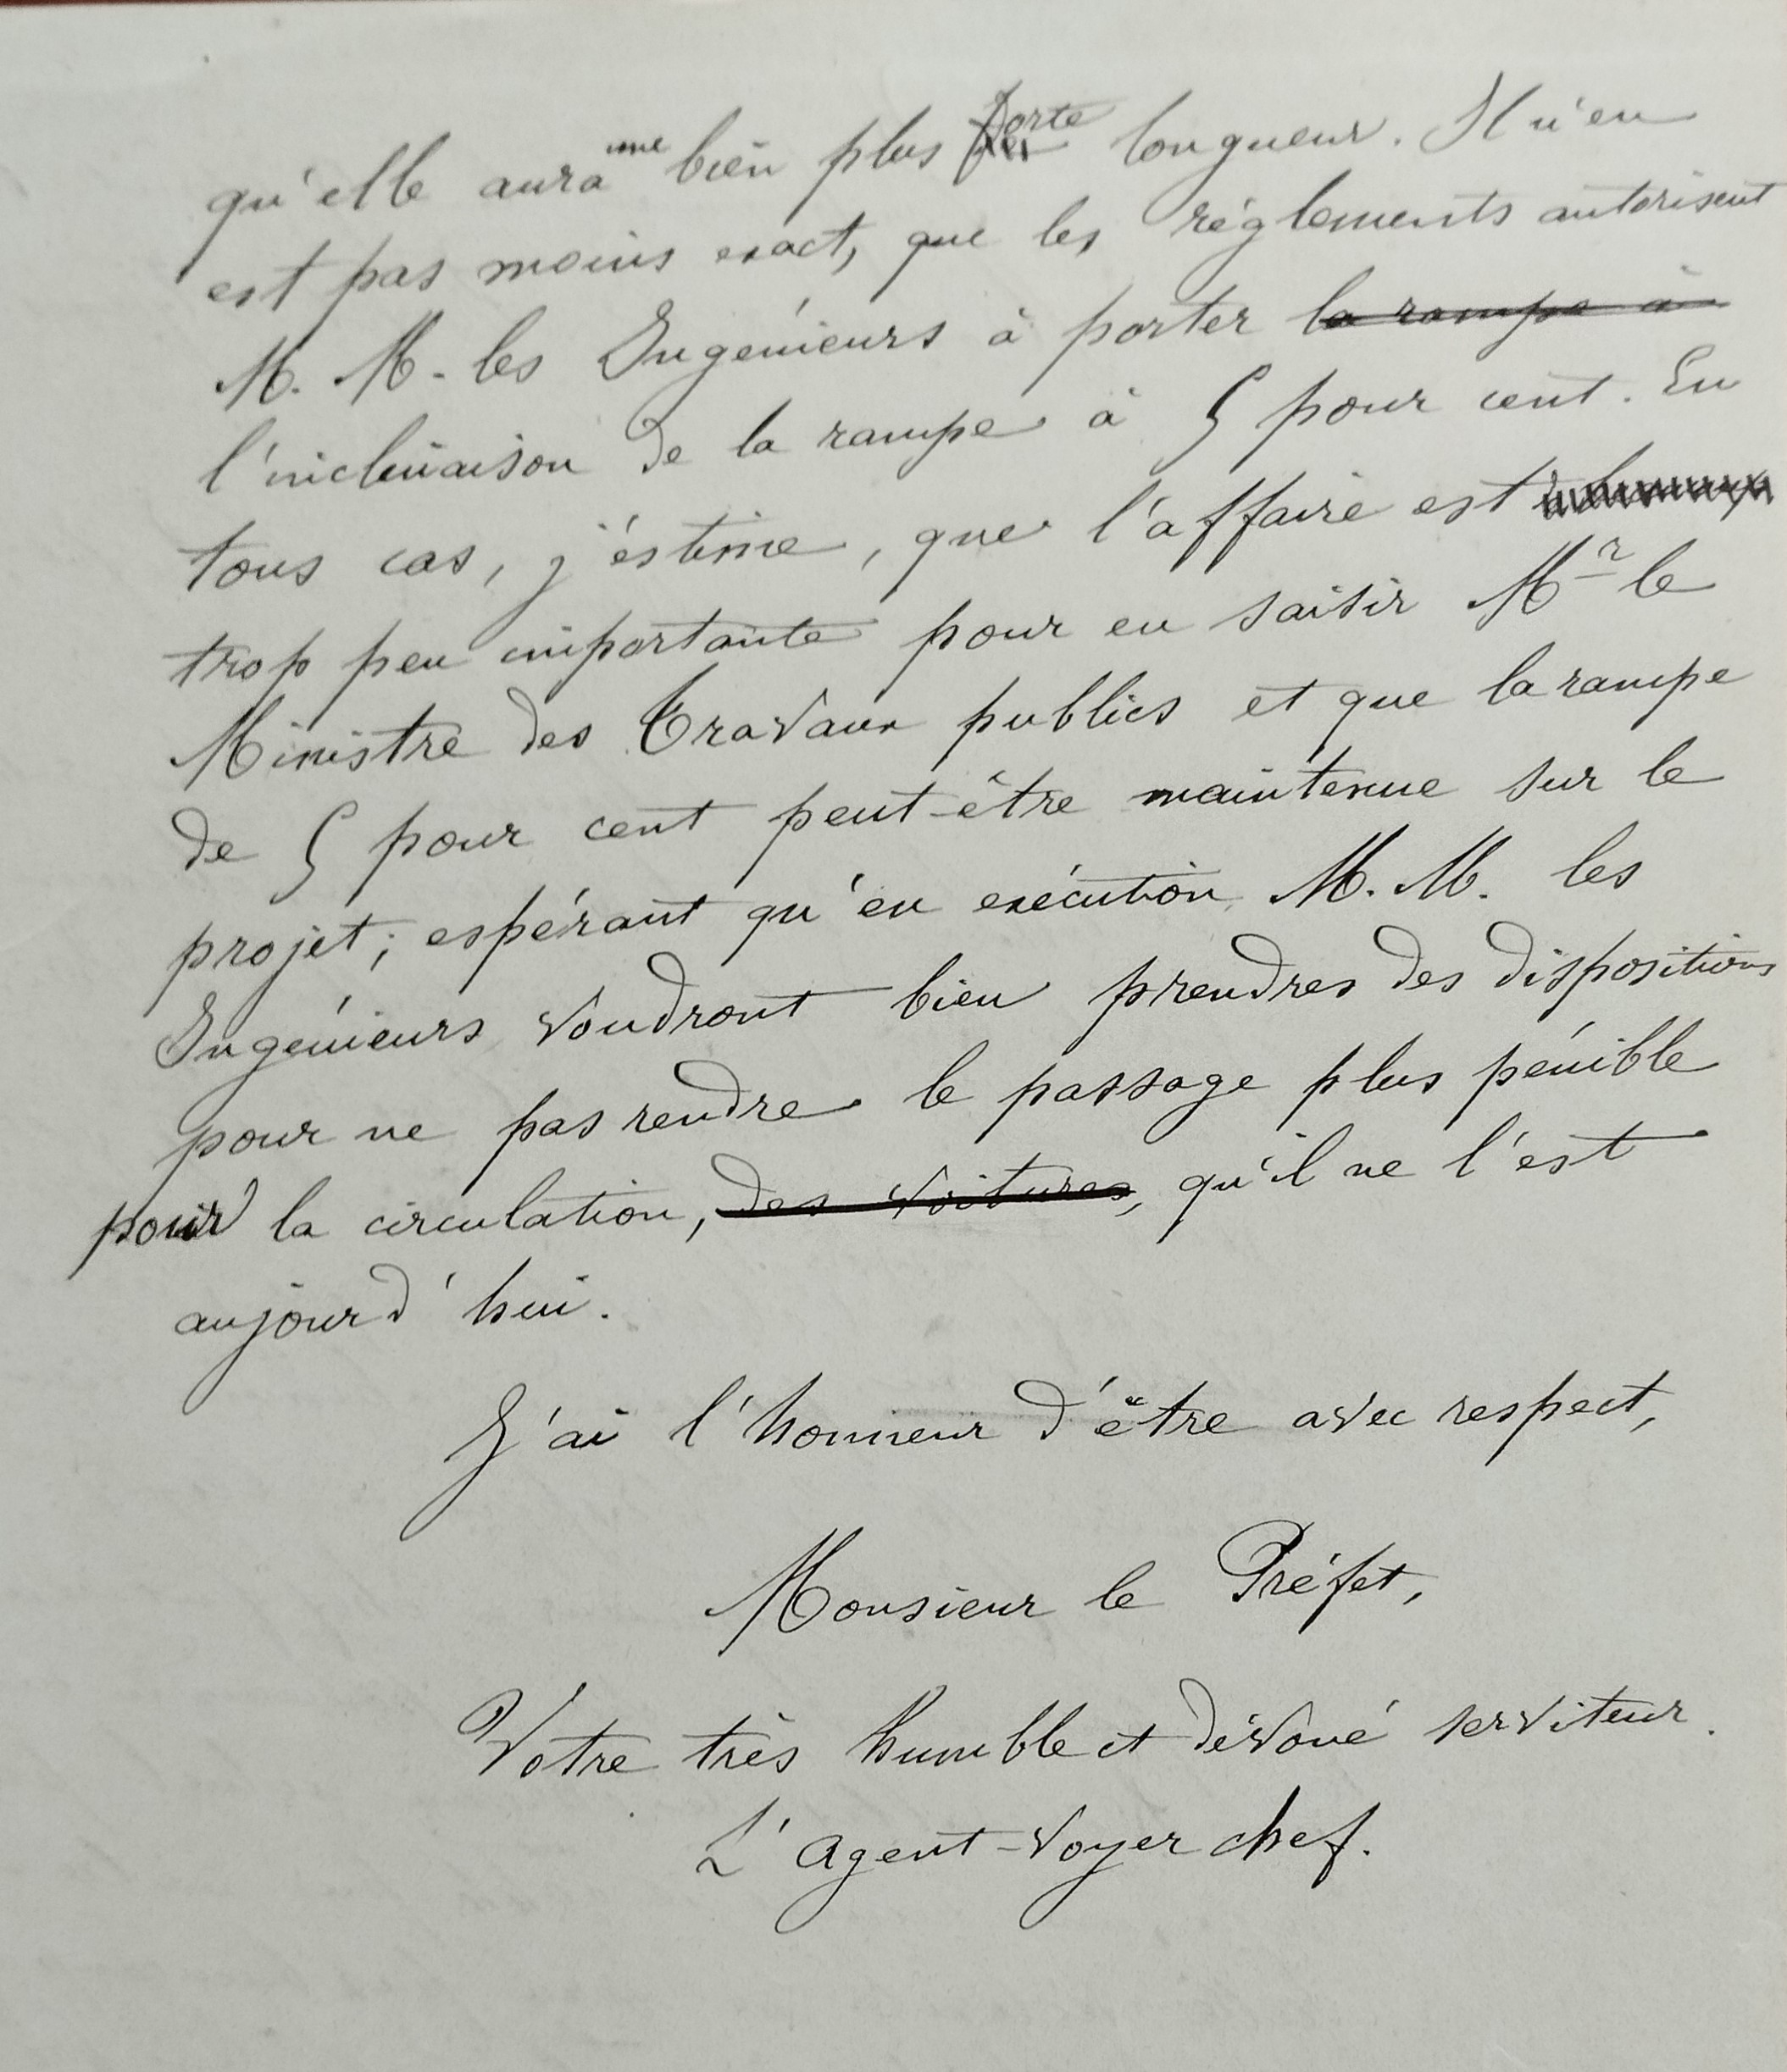 qu'elle aura une bien plus forte longueur. Il n'en
est pas moins exact, que les réglements autorisent
M. M. les Ingénieurs à porter la rampe à
l'inclinaison de la rampe à 5 pour cent. En
tous cas, j'éstime, que l'affaire est
trop peu importante pour en saisir Mr le
Ministre des Travaux publics et que la rampe
de 5 pour cent peut-être maintenue sur le
projet; espérant qu'en exécution M. M. les
Ingénieurs voudront bien prendres des dispositions
pour ne pas rendre le passage plus pénible
pour la circulation, des voitures, qu'il ne l'est
aujourd'hui.
J'ai l'honneur d'être avec respect,
Monsieur le Préfet,
Votre très humble et dévoué serviteur.
L'Agent-Voyer chef.